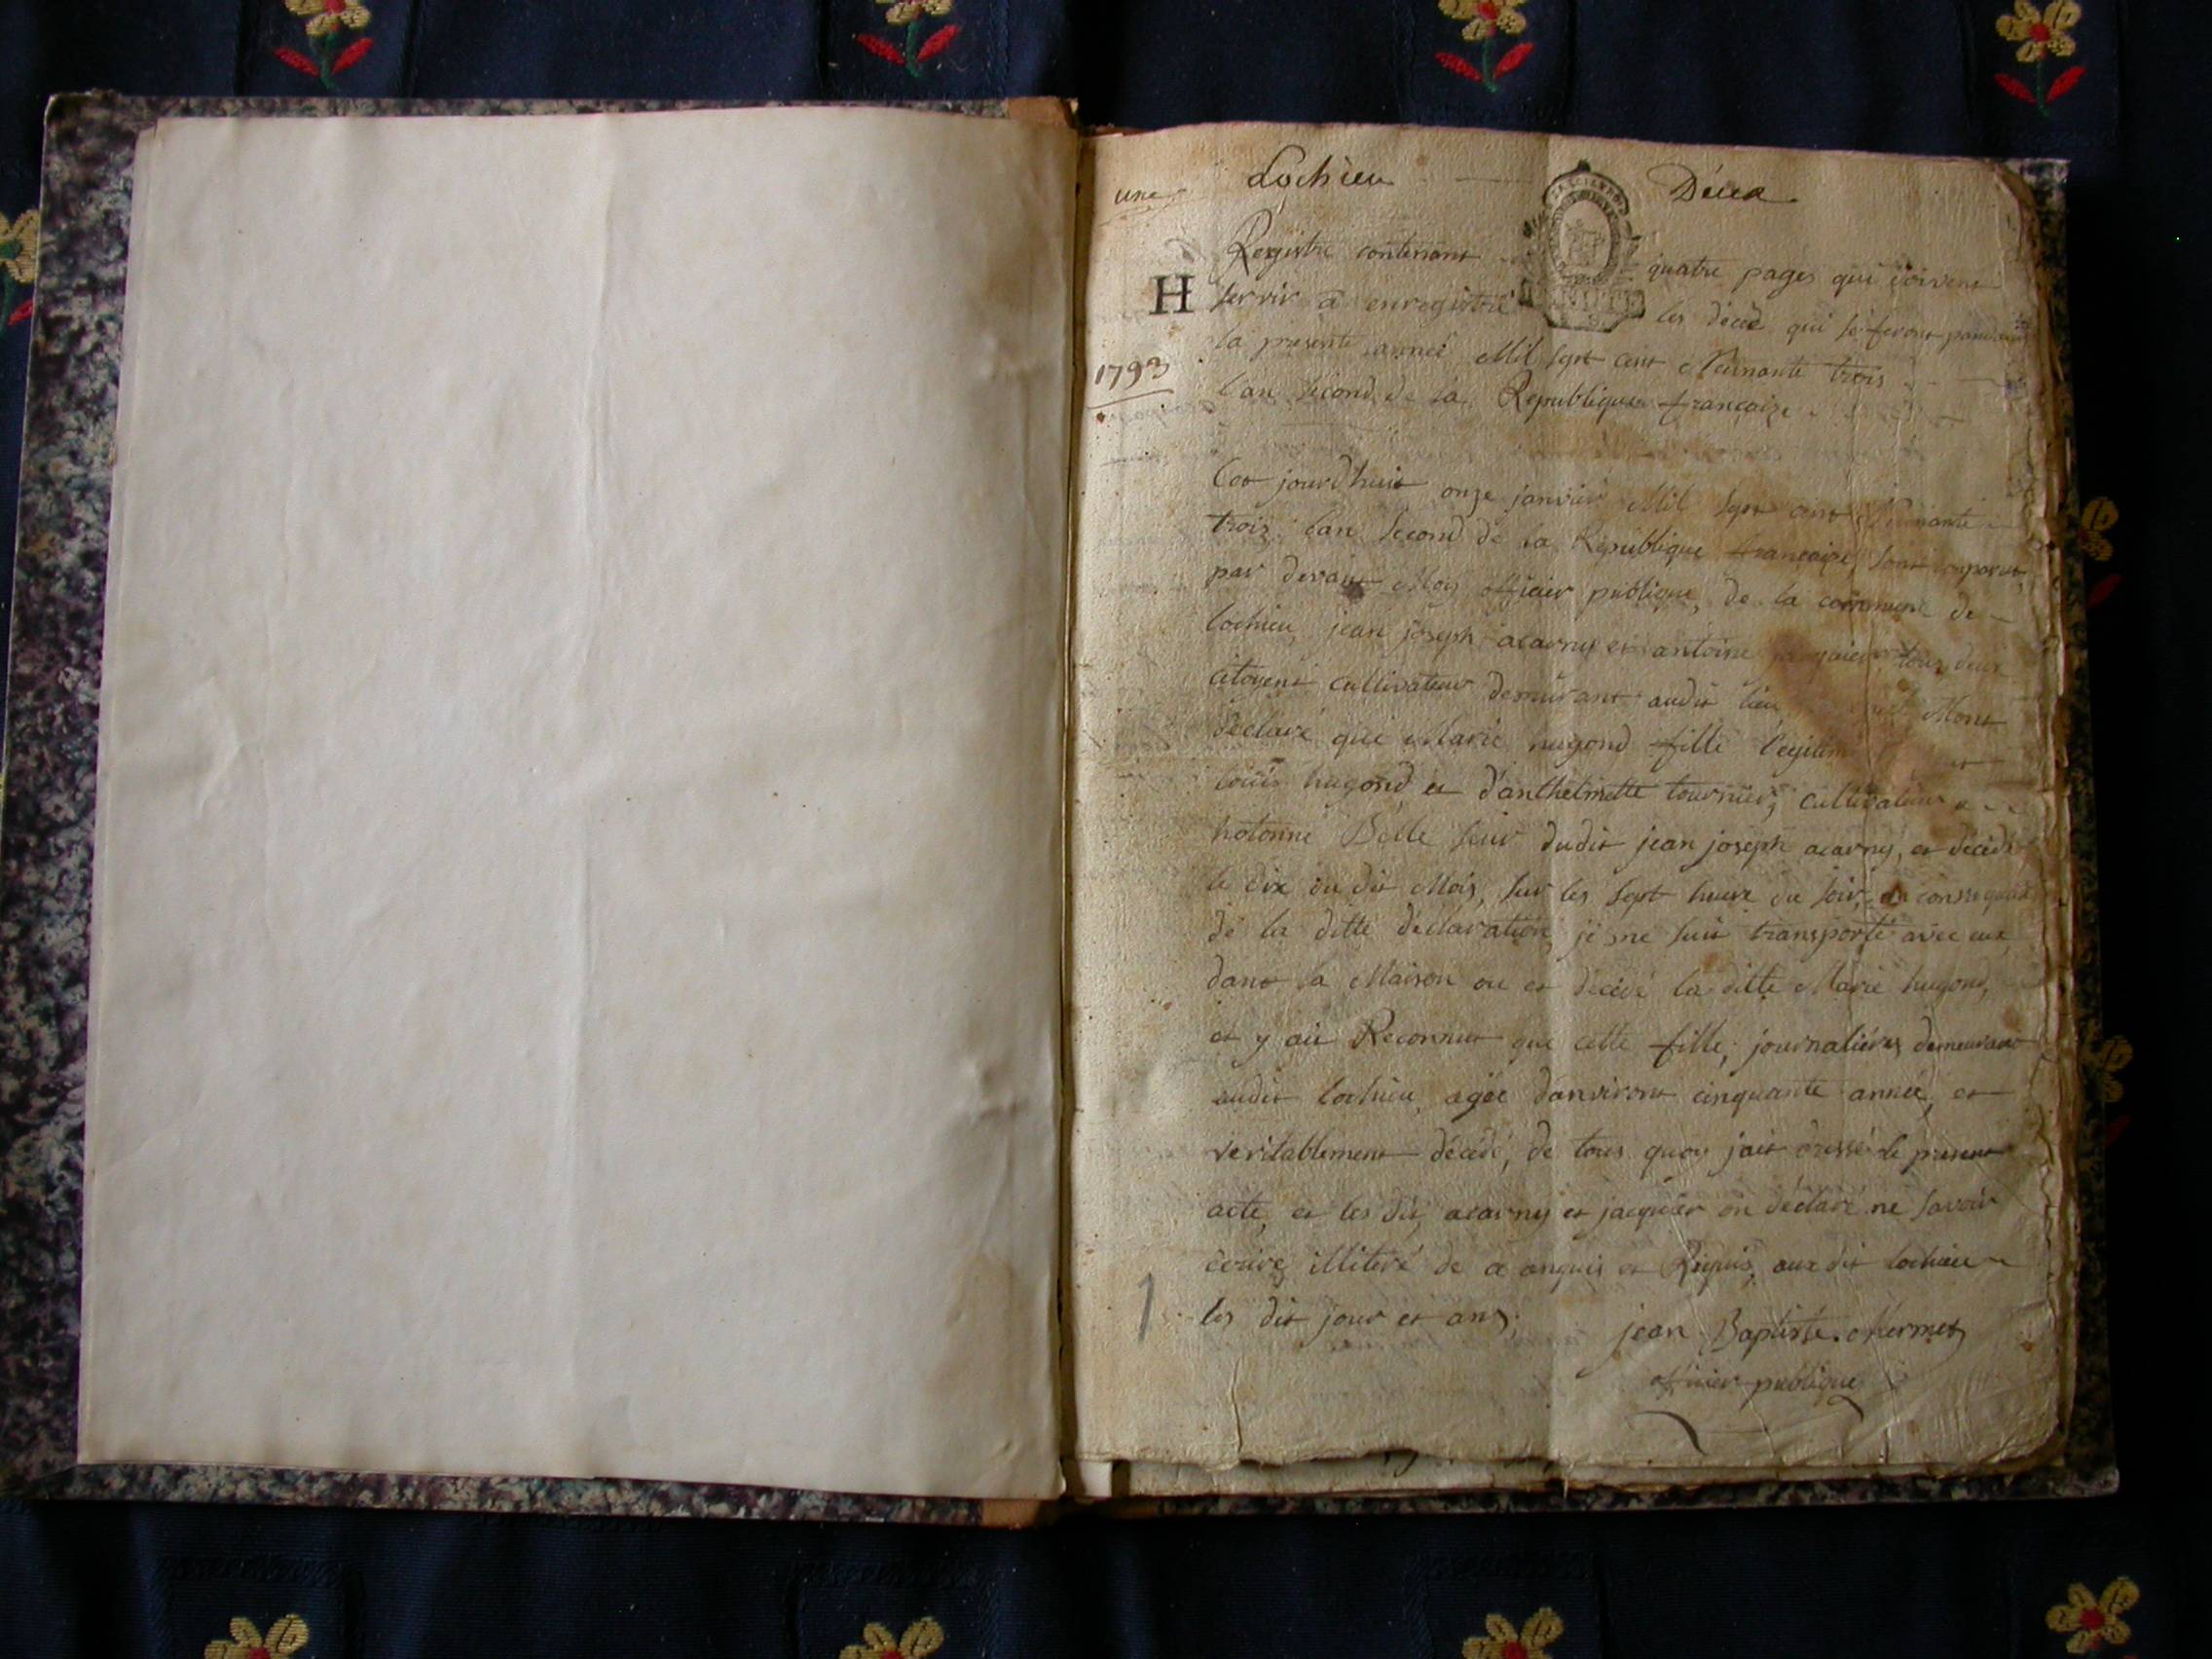 une Lochieu Décea
Registre contenant quatre pages qui doivent
H servir a enregistré les décèd qui se feront pandant
1793 la presente année Mil sept cent Neunante trois
l'an second de la Republique françaize
Cet jourd'huit onze janvier Mil sept cent Neunante
trois lan second de la Republique françaize, sont comparut
par devant Moy officier publique, de la commune de
lochieu jean joseph acarny et antoine jacquier tous deux
citoyent cultivateur demeurant audit lieu Mont
déclaré que Marie hugond fille legitime
louis hugond et d'anthelmette tournier, cultivateur a
hotonne Belle seur dudit jean joseph acarny, et décédé
le dix du dit Mois, sur les sept heure du soir, en consequance
de la ditte déclaration je me suis transporté avec eux
dans la Maison ou et décédé la ditte Marie hugond,
et y ait Reconnut que cette fille, journalières demeurant
audit lochieu agée danviront cinquante année, et
veritablement décédé, de tous quoy jait dressé le present
acte, et les dit acarny et jacquier on déclaré ne savoir
écrire illiteré de a enquis et Riquis, aux dit lochieu
les dit jour et ans,
1 jean Baptiste Mermet
officier publique